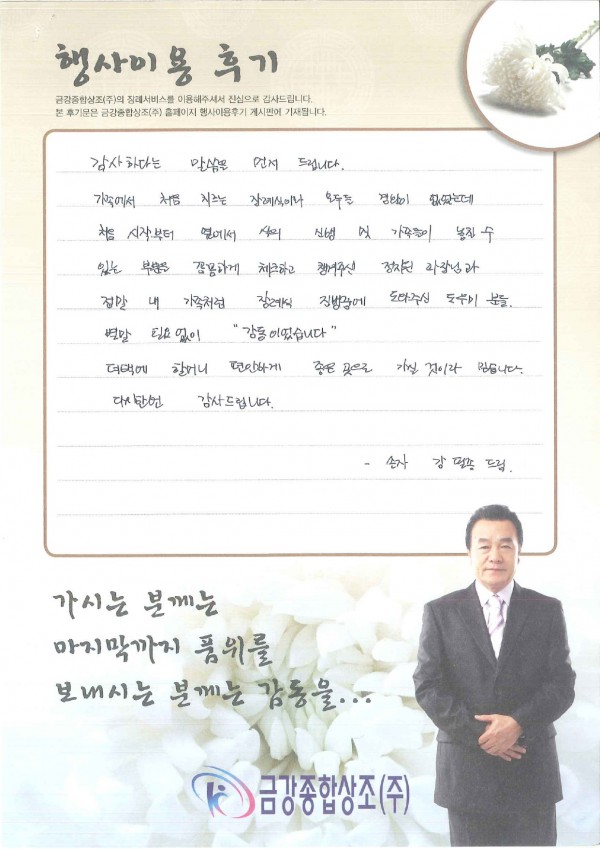 행사이용 후기
금강종합상조(주)의 장례서비스를 이용해주셔서 진심으로 감사드립니다.
본 후기문은 금강종합상조(주) 홈페이지 행사이용후기 게시판에 기재됩니다.
감사하다는 말씀을 먼저 드립니다.
가족에서 처음 치르는 장례식이나 모두들 경험이 없었는데
처음 시작부터 옆에서 상의 진행 및 가족들이 놓친 수
있는 부분을 꼼꼼하게 체크하고 챙겨주신 과장님과
정말 내 가족처럼 장례식 진행중에 도와주신 도우미 분들.
별말 필요없이 "감동이었습니다"
덕택에 할머니 편안하게 좋은 곳으로 가실 것이라 믿습니다.
다시한번 감사드립니다.
- 손자 강 드림.
가시는 분께는
마지막까지 품위를
보내시는 분께는 감동을...
금강종합상조(주)